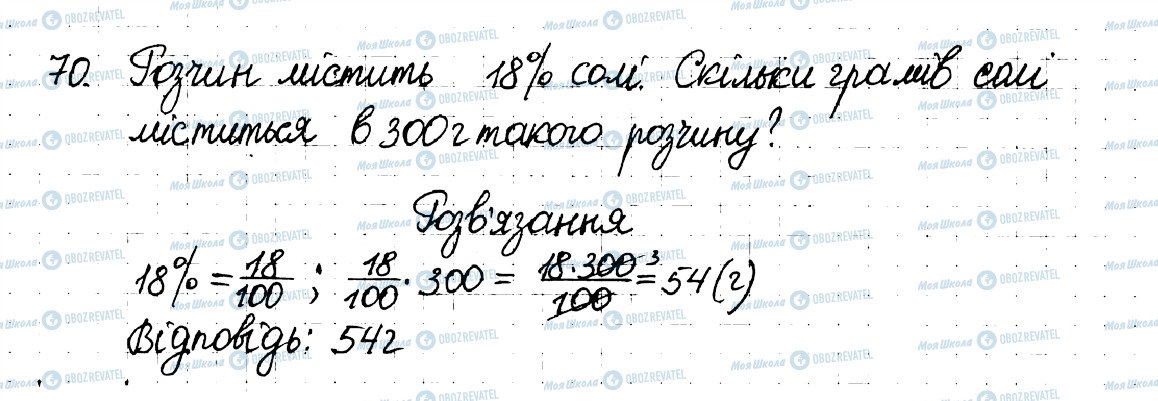 70. Розчин містить 18% солі. Скільки грамів солі
міститься в 300г такого розчину?
Розв'язання
18% = 18/100 ; 18/100 · 300 = 18·300/100 ³ = 54 (г)
Відповідь: 54г